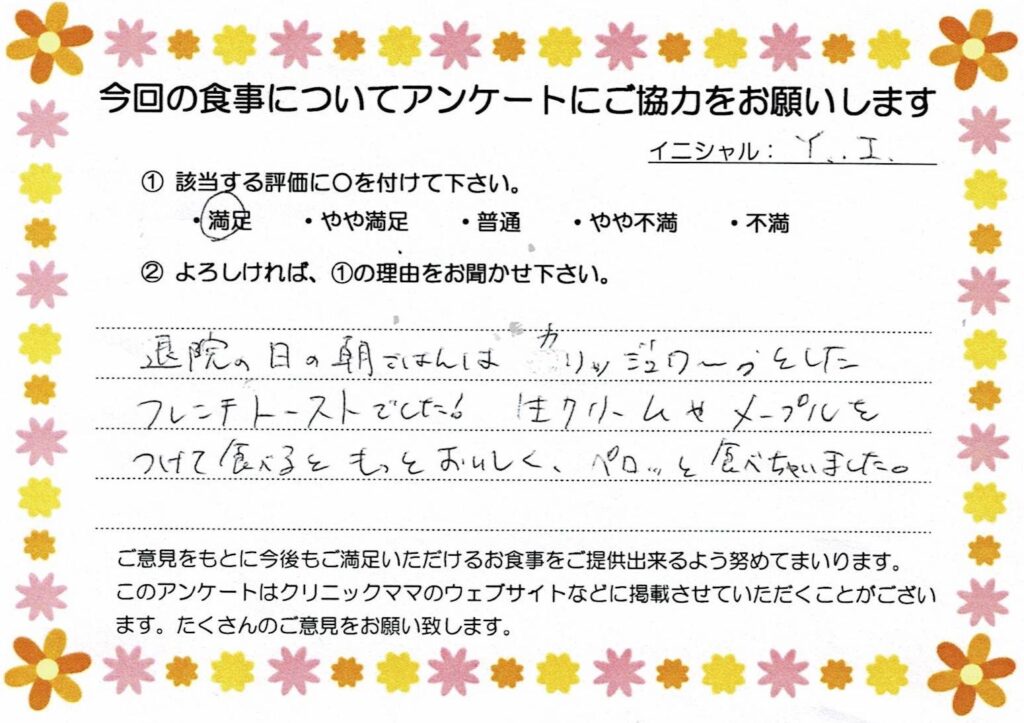 今回の食事についてアンケートにご協力をお願いします
イニシャル： Y. I.
① 該当する評価に〇を付けて下さい。
・満足 ・やや満足 ・普通 ・やや不満 ・不満
② よろしければ、①の理由をお聞かせ下さい。
退院の日の朝ごはんは カリッジュワ〜っとした
フレンチトーストでした! 生クリームや メープルを
つけて食べると もっと おいしく、ペロッと 食べちゃいました。
ご意見をもとに今後もご満足いただけるお食事をご提供出来るよう努めてまいります。
このアンケートはクリニックママのウェブサイトなどに掲載させていただくことがござい
ます。たくさんのご意見をお願い致します。